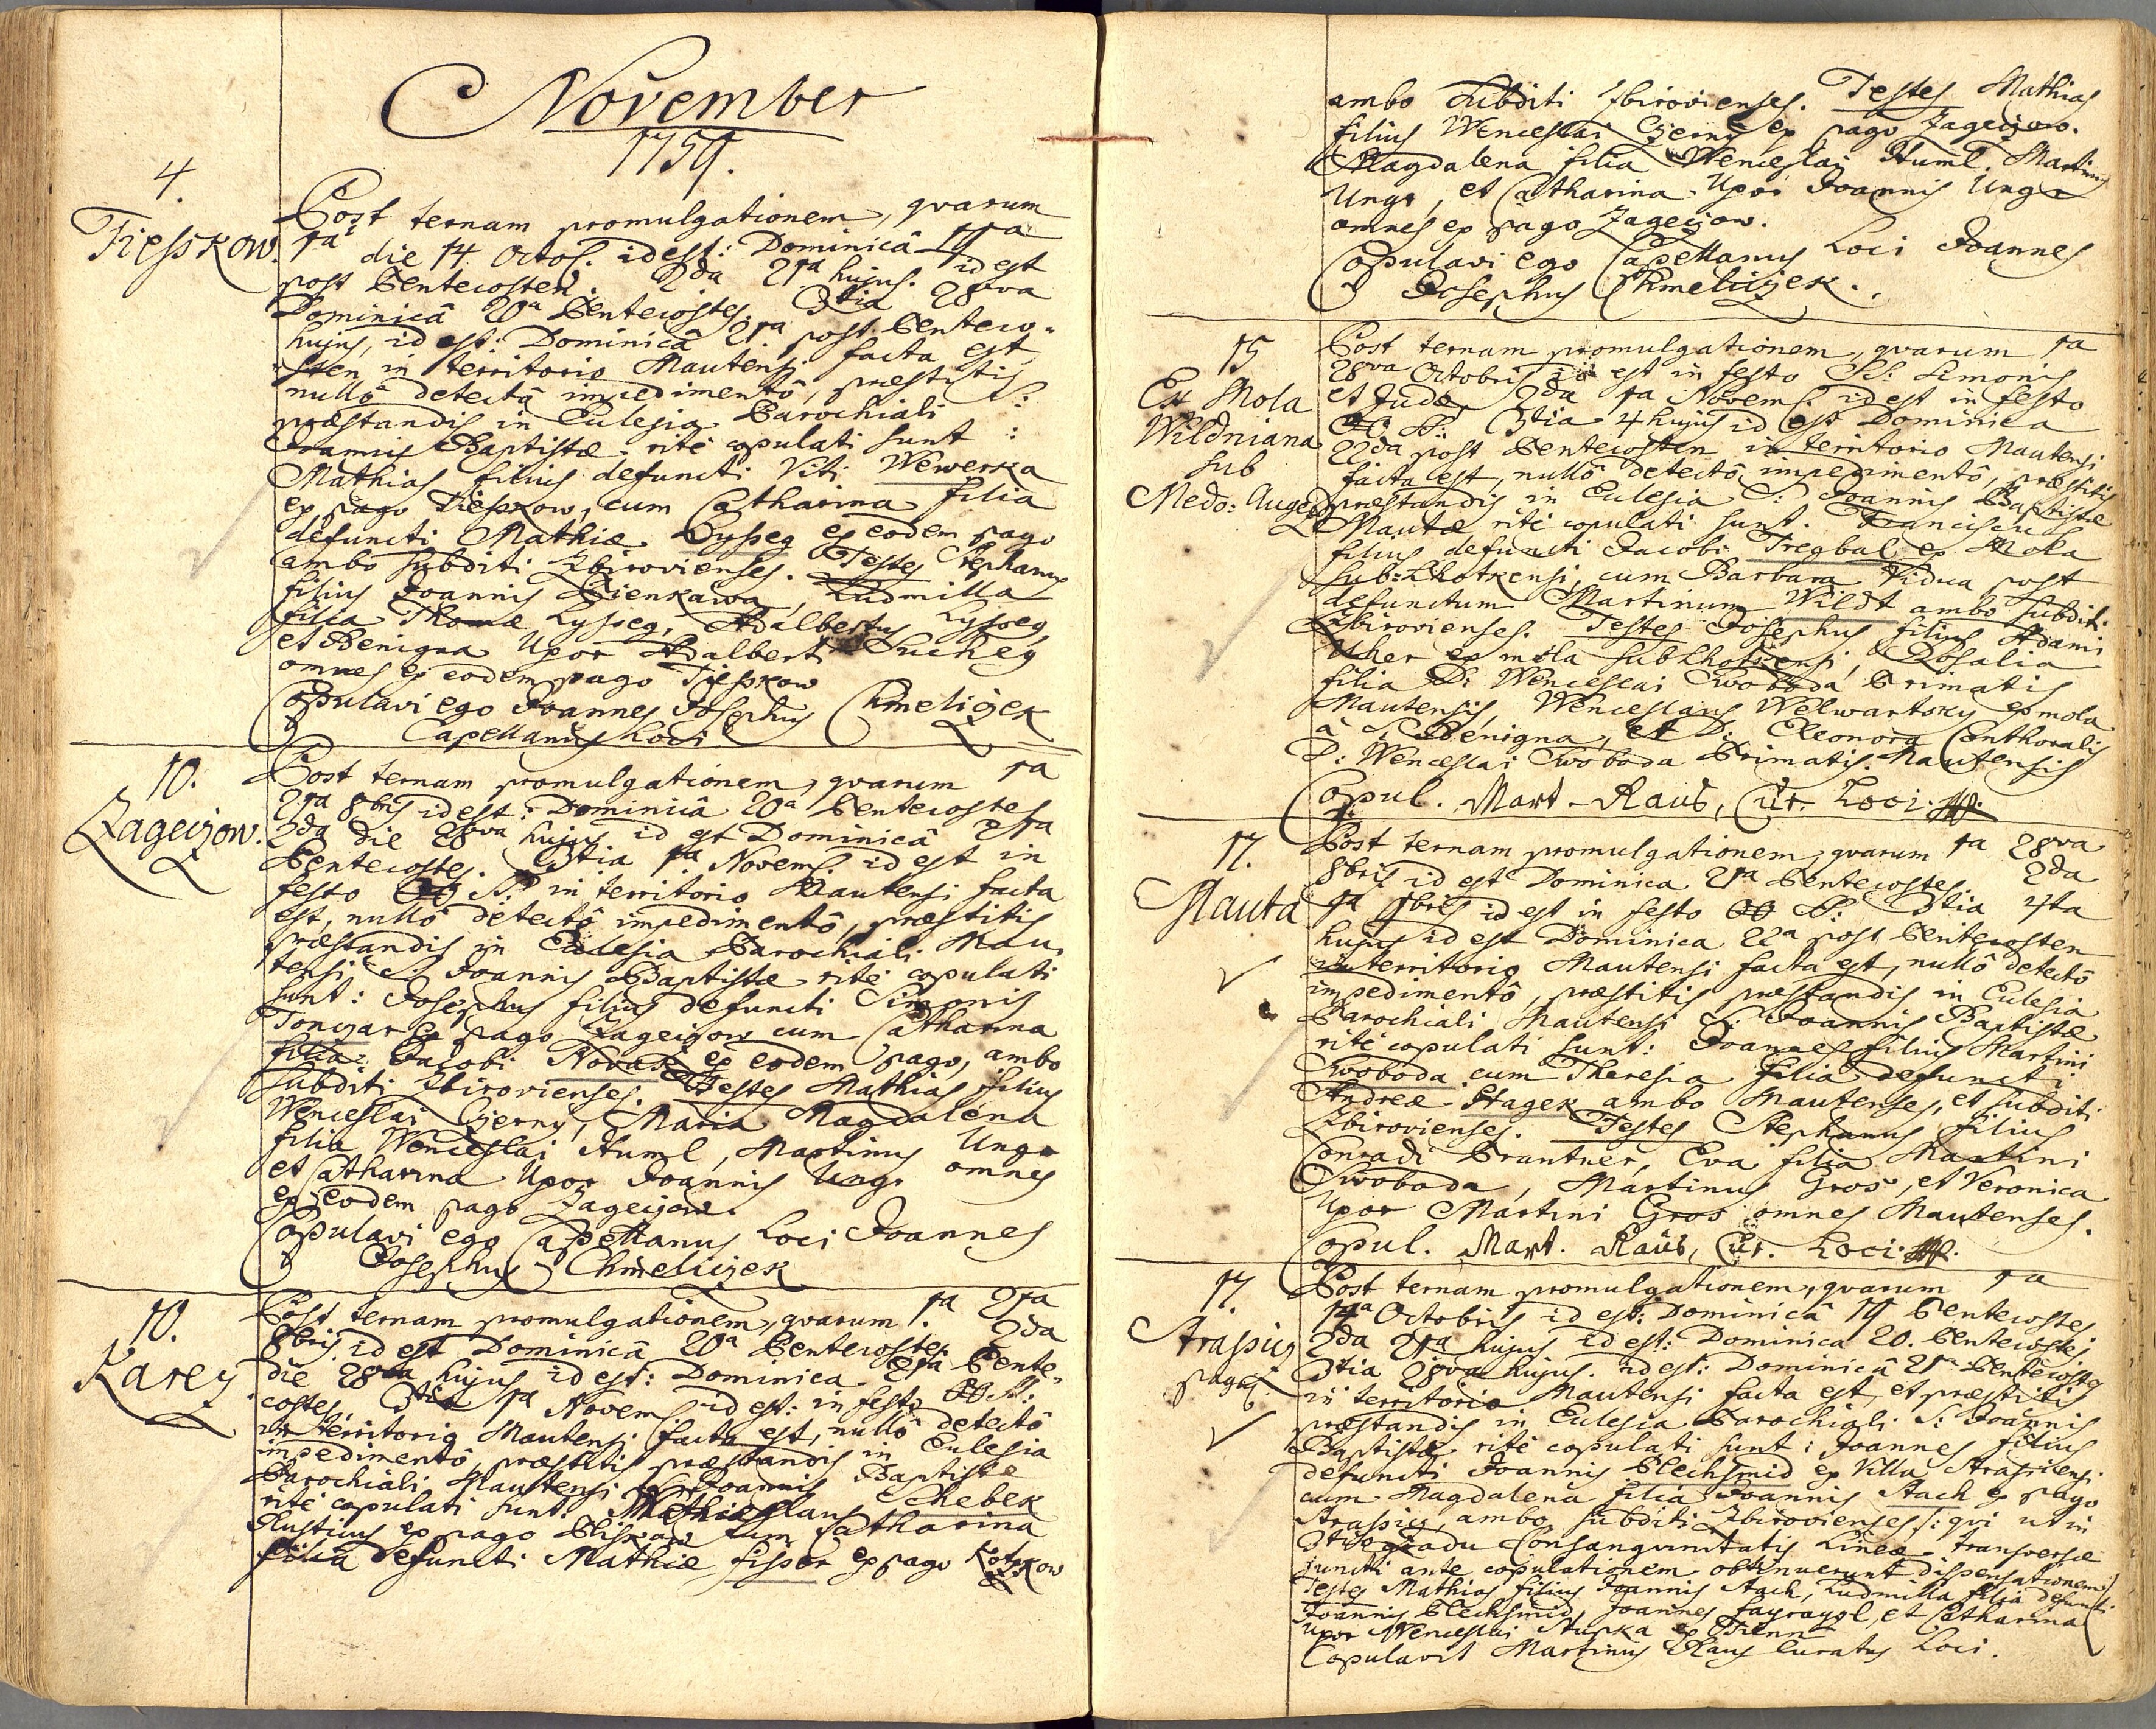 November
1759.
4.
Tiesskow.
Post ternam promulgationem, qvarum
1ma die 14 Octob. id est: Dominicâ 19na
post Pentecosten. 2da 21ma hujus. id est
Dominicâ 20a Pentecostes. 3tia 28va
hujus, id est: Dominicâ 21ma post Penteco-
sten in territorio Mautensi facta est,
nullô detectô impedimentô, præstitis
præstandis in Eclesia Parochiali S:
Joannis Baptistæ ritè copulati sunt:
Mathias filius defuncti Viti Wewerka
ex pago Tiesskow, cum Catharina filia
defuncti Mathiæ Lysseg ex eodem pago
ambo Subditi Zbirovienses. Testes Stephanus
filius Joannis, Ludmilla
filia Thomæ Lysseg, Adalbertus Lysseg
et Benigna Uxor Adalberti Suchey
omnes ex eodem pago Tiesskow
Copulavi ego Joannes Josephus Chmeliczek
Capellanus Loci
10.
Zageczow.
Post ternam promulgationem, qvarum 1ma
21ma 8bris id est: Dominicâ 20a Pentecostes
2da die 28va hujus id est Dominicâ 21ma
Pentecostes. 3tia 1ma Novem. id est in
festo OO SS. in territorio Mautensi facta
est, nullô detectô impedimentô, præstitis
præstandis in Eclesia Parochiali Mau-
tensi, S: Joannis Baptistæ ritè copulati
sunt: Josephus filius defuncti Simonis
Tonczar ex pago Zageczow cum Catharina
filia Jacobi Novak ex eodem pago, ambo
Subditi Zbirovienses. Testes Mathias filius
Wenceslai Czerny, Maria Magdalena
filia Wenceslai Huml, Martinus Ungr
et Catharina Uxor Joannis Ungr omnes
ex eodem pago Zageczow.
Copulavi ego Capellanus Loci Joannes
Josephus Chmeliczek
10.
Karey
Post ternam promulgationem, qvarum 1ma 21ma
8bris id est Dominicâ 20a Pentecostes 2da
die 28va hujus id est: Dominica 21ma Pente-
costes, 3tia 1ma Novem. id est: in festo OO SS:
in territorio Mautensi facta est, nullô detectô
impedimentô, præstitis præstandis in Eclesia
Parochiali Mautensi S. Joannis Baptistæ
ritè copulati sunt: Schebek
Rusticus ex pago cum Catharina
filia defuncti Mathiæ fisser ex pago
ambo Subditi Zbirovienses. Testes Mathias
filius Wenceslai Czerny ex pago Zageczow.
Magdalena filia Wenceslai Huml, Martinus
Ungr, et Catharina Uxor Joannis Ungr
omnes ex pago Zageczow.
Copulavi ego Capellanus Loci Joannes
Josephus Chmeliczek.
15
Ex Mola
Wildniana
sub
Medo: Augezd
Post ternam promulgationem, qvarum 1ma
28va Octobris id est in festo SS: Simonis
et Judæ, 2da 1ma Novem. id est in festo
OO SS: 3tia 4 hujus id est Dominica
22da post Pentecosten in territorio Mautensi
facta est, nullô detectô impedimentô, præstitis
præstandis in Eclesia S: Joannis Baptistæ
Mautæ ritè copulati sunt. Franciscus
filius defuncti Jacobi Tregbal ex Mola
sub-Lhotkensi, cum Barbara Vidua post
defunctum Martinum Wildt ambo Subditi
Zbirovienses. Testes Josephus filius Adami
Uher ex mola sub Lhotkensi, Rosalia
filia D: Wenceslai Swoboda Primatis
Mautensis, Wenceslaus Welwartsky ex mola
à S. Benigna, et D. Eleonora Conthoralis
D: Wenceslai Swoboda Primatis Mautensis
Copul. Mart. Raus, Cur. Loci. mp.
17.
Mauta
Post ternam promulgationem, qvarum 1ma 28va
8bris id est Dominica 21ma Pentecostes. 2da
1ma 9bris id est in festo OO SS: 3tia 4ta
hujus id est Dominica 22a post Pentecosten
in territorio Mautensi facta est, nullô detectô
impedimentô, præstitis præstandis in Eclesia
Parochiali Mautensi S. Joannis Baptistæ
ritè copulati sunt: Joannes filius Martini
Swoboda cum Theresia filia defuncti
Andreæ Hagek ambo Mautenses, et Subditi
Zbirovienses. Testes Stephanus filius
Conradi Brantner, Eva filia Martini
Swoboda, Martinus Gros, et Veronica
Uxor Martini Gros omnes Mautenses.
Copul. Mart. Raus, Cur. Loci. mp.
17.
Strassicz
pagus
Post ternam promulgationem, qvarum 1ma
14ta Octobris id est: Dominicâ 19 Pentecostes
2da 21ma hujus id est: Dominica 20. Pentecostes
3tia 28va hujus. id est: Dominicâ 21ma Pentecostes
in territorio Mautensi facta est, et præstitis
præstandis in Eclesia Parochiali S: Joannis
Baptistæ ritè copulati sunt: Joannes filius
defuncti Joannis Plechsmid ex Villa Strassicensi
cum Magdalena filia Joannis Stach ex pago
Strassicz, ambo subditi Zbirovienses /: qvi ut in
3tio gradu Consangvinitatis Lineæ transversæ
juncti ante copulationem obtinuerunt dispensationem:/
Testes Mathias filius Joannis Stach, Ludmilla filia defuncti
Joannis Plechsmid, Joannes fayraygl, et Catharina
uxor Wenceslai Stupka ex Tienn
Copulavit Martinus Raus Curatus Loci.